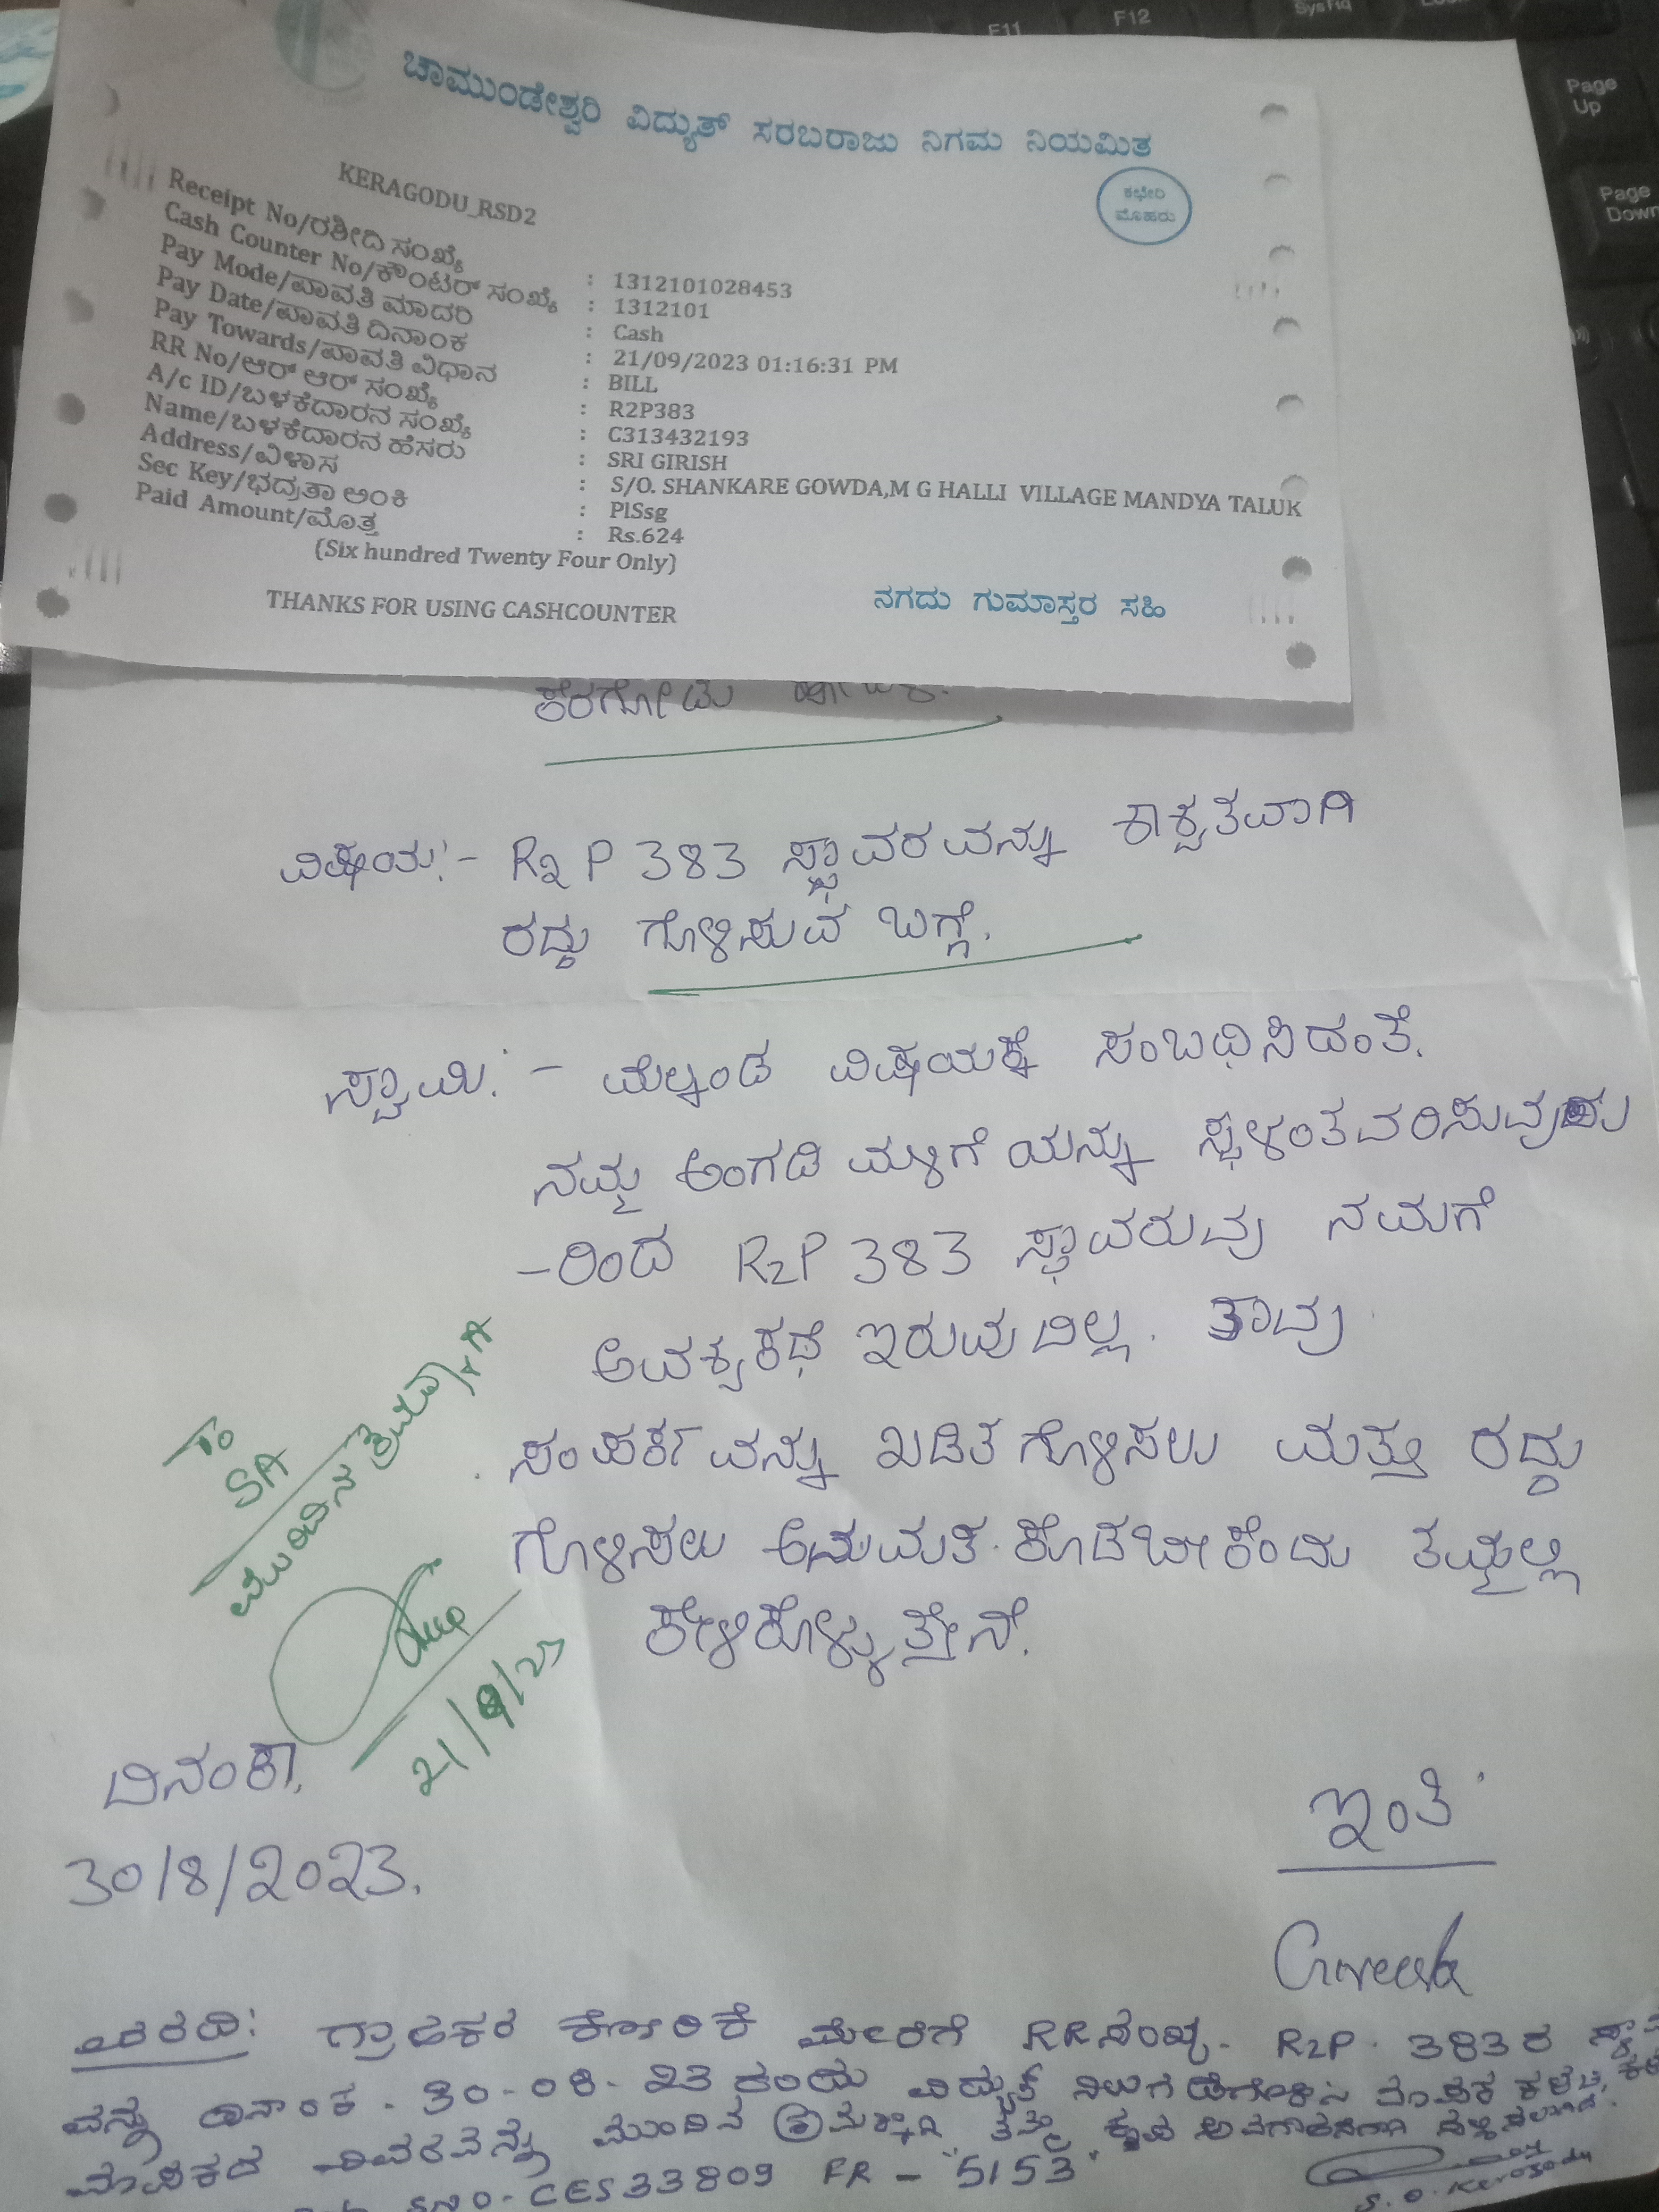 ಚಾಮುಂಡೇಶ್ವರಿ ವಿದ್ಯುತ್ ಸರಬರಾಜು ನಿಗಮ ನಿಯಮಿತ
KERAGODU_RSD2
ಕಛೇರಿ
ಮೊಹರು
Receipt No/ರಶೀದಿ ಸಂಖ್ಯೆ : 1312101028453
Cash Counter No/ಕೌಂಟರ್ ಸಂಖ್ಯೆ : 1312101
Pay Mode/ಪಾವತಿ ಮಾದರಿ : Cash
Pay Date/ಪಾವತಿ ದಿನಾಂಕ : 21/09/2023 01:16:31 PM
Pay Towards/ಪಾವತಿ ವಿಧಾನ : BILL
RR No/ಆರ್ ಆರ್ ಸಂಖ್ಯೆ : R2P383
A/c ID/ಬಳಕೆದಾರನ ಸಂಖ್ಯೆ : C313432193
Name/ಬಳಕೆದಾರನ ಹೆಸರು : SRI GIRISH
Address/ವಿಳಾಸ : S/O. SHANKARE GOWDA,M G HALLI VILLAGE MANDYA TALUK
Sec Key/ಭದ್ರತಾ ಅಂಕಿ : PlSsg
Paid Amount/ಮೊತ್ತ : Rs.624
(Six hundred Twenty Four Only)
THANKS FOR USING CASHCOUNTER
ನಗದು ಗುಮಾಸ್ತರ ಸಹಿ
ಕೆರಗೋಡು
ವಿಷಯ:- R2P 383 ಸ್ಥಾವರವನ್ನು ಶಾಶ್ವತವಾಗಿ
ರದ್ದು ಗೊಳಿಸುವ ಬಗ್ಗೆ.
ಸ್ವಾಮಿ:- ಮೆಲ್ಕಂಡ ವಿಷಯಕ್ಕೆ ಸಂಬಧಿಸಿದಂತೆ.
ನಮ್ಮ ಅಂಗಡಿ ಮಳಿಗೆಯನ್ನು ಸ್ಥಳಂತವರಿಸುವುದು
-ರಿಂದ R2P 383 ಸ್ಥಾವರುವು ನಮಗೆ
ಅವಶ್ಯಕಥೆ ಇರುವುದಿಲ್ಲ. ತಾವು
ಸಂಪರ್ಕವನ್ನು ಖಡಿತಗೊಳಿಸಲು ಮತ್ತು ರದ್ದು
ಗೊಳಿಸಲು ಅನುಮತಿ ಕೊಡಬೇಕೆಂದು ತಮ್ಮಲ್ಲಿ
ಕೇಳಿಕೊಳ್ಳುತ್ತೇನೆ.
To
SA
ಮುಂದಿನ
21/9/23
ದಿನಂಕಾ,
30/8/2023.
ಇಂತಿ
ವರದಿ: ಗ್ರಾಹಕರ ಕೋರಿಕೆ ಮೇರೆಗೆ RR ಸಂಖ್ಯೆ. R2P. 383ರ
ವನ್ನು ದಿನಾಂಕ. 30-08-23 ರಂದು ವಿದ್ಯುತ್ ನಿಲುಗಡೆಗೊಳಿಸಿ ಮಾಪಕ
ಮಾಪಕದ ವಿವರವನ್ನು ಮುಂದಿನ
SNO-CES33809 FR - 5153
S.O. Keragodu